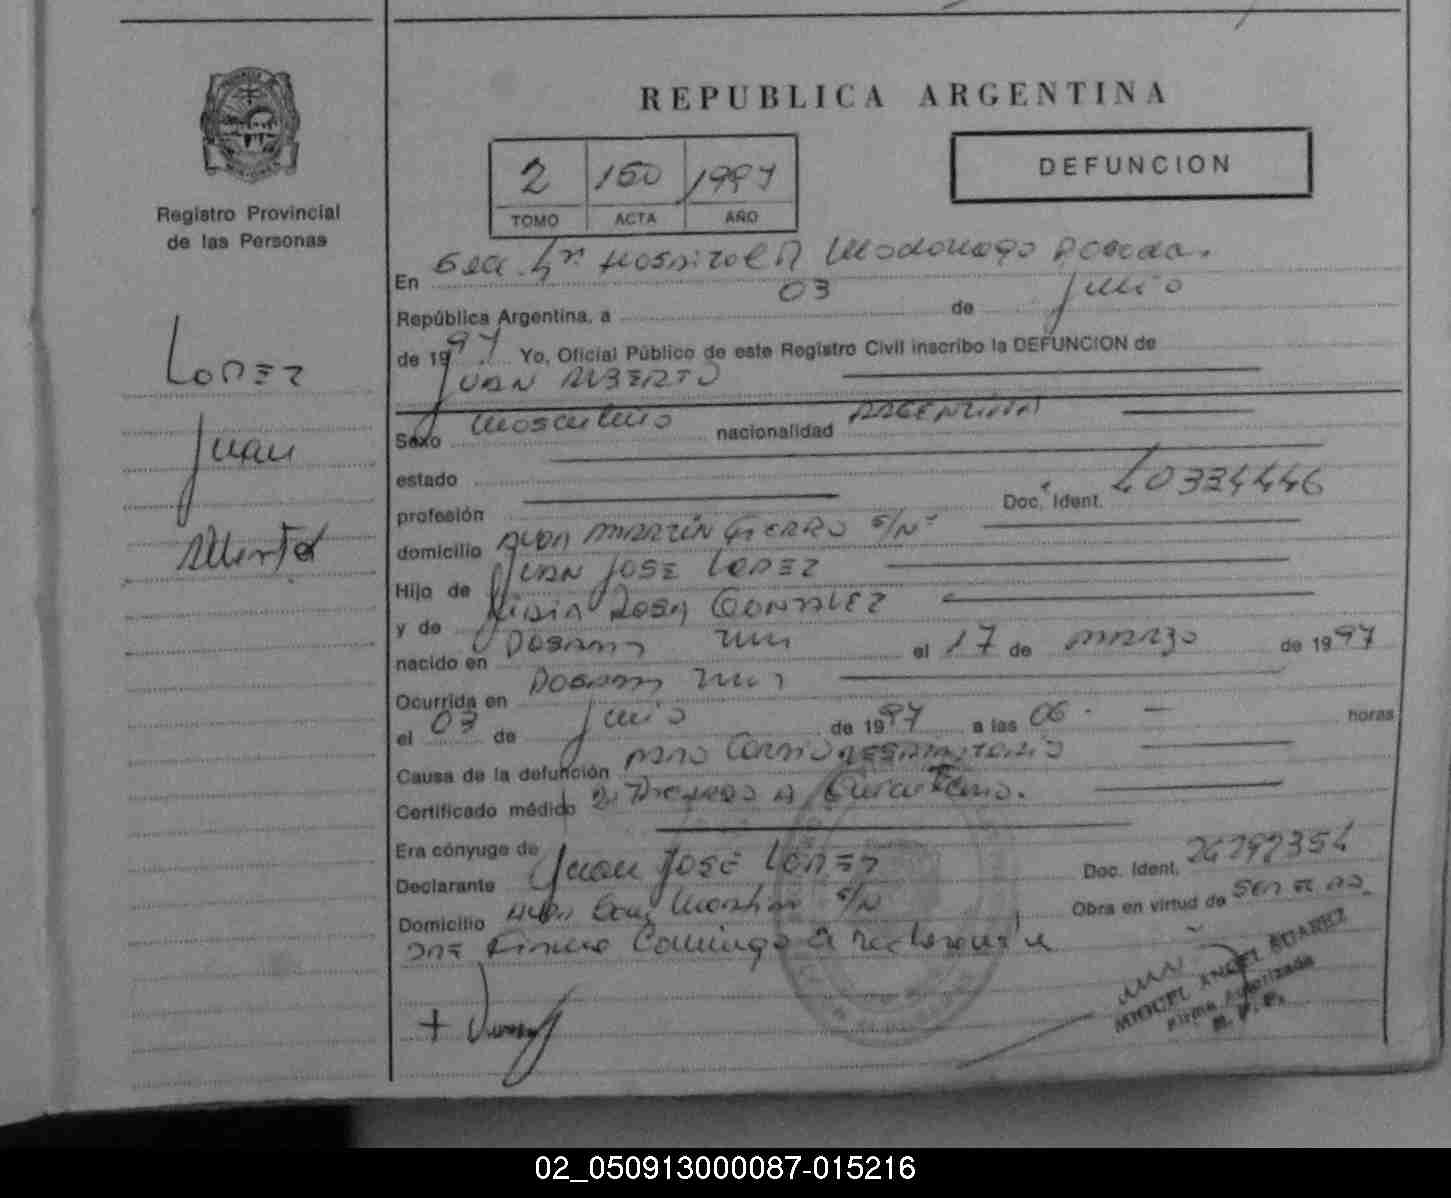 REPUBLICA ARGENTINA
2 150 1997
TOMO ACTA AÑO
DEFUNCION
Registro Provincial
de las Personas
LOPEZ
Juan
Alberto
En Hospital R Madariaga Posadas.
República Argentina, a 03 de Junio
de 1997 Yo, Oficial Público de este Registro Civil inscribo la DEFUNCION de
JUAN ALBERTO
Sexo Masculino nacionalidad ARGENTINA
estado
profesión Doc. Ident. 40334446
domicilio AVDA MARTIN FIERRO S/Nº
Hijo de JUAN JOSE LOPEZ
y de ROSA GONZALEZ
nacido en POSADAS MNES el 17 de MARZO de 1997
Ocurrida en POSADAS MNES
el 03 de Junio de 1997 a las 06 horas
Causa de la defunción PARO CARDIORESPIRATORIO
Certificado médico
Era cónyuge de
Declarante Juan JOSÉ LOPEZ Doc. Ident. 24292354
Domicilio AVDA Martin S/N Obra en virtud de SER EL PA
DRE Firma Conmigo el declarante
MIGUEL ANGEL SUAREZ
Firma Autorizada
R. P. P.
02_050913000087-015216